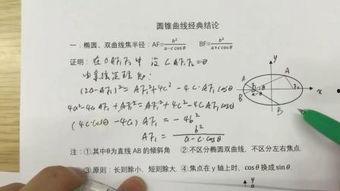 圆锥曲线经典结论
一．椭圆、双曲线焦半径：AF=b²/(a-c cosθ) BF=b²/(a+c cosθ)
证明：在△AF₁F₂中 设∠AF₁F₂=θ
由余弦定理知：
(2a-AF₁)²=AF₁²+4c²-4c·AF₁cosθ
4a²-4aAF₁+AF₁²=AF₁²+4c²-4cAF₁cosθ
(4c·cosθ-4a)AF₁=-4b²
AF₁=b²/(a-c·cosθ)
y
A
x
B
注：①其中θ为直线AB的倾斜角 ②不区分椭圆双曲线，不区分左右焦点
③原则：长则除小、短则除大 ④焦点在y轴上时，cosθ换成sinθ